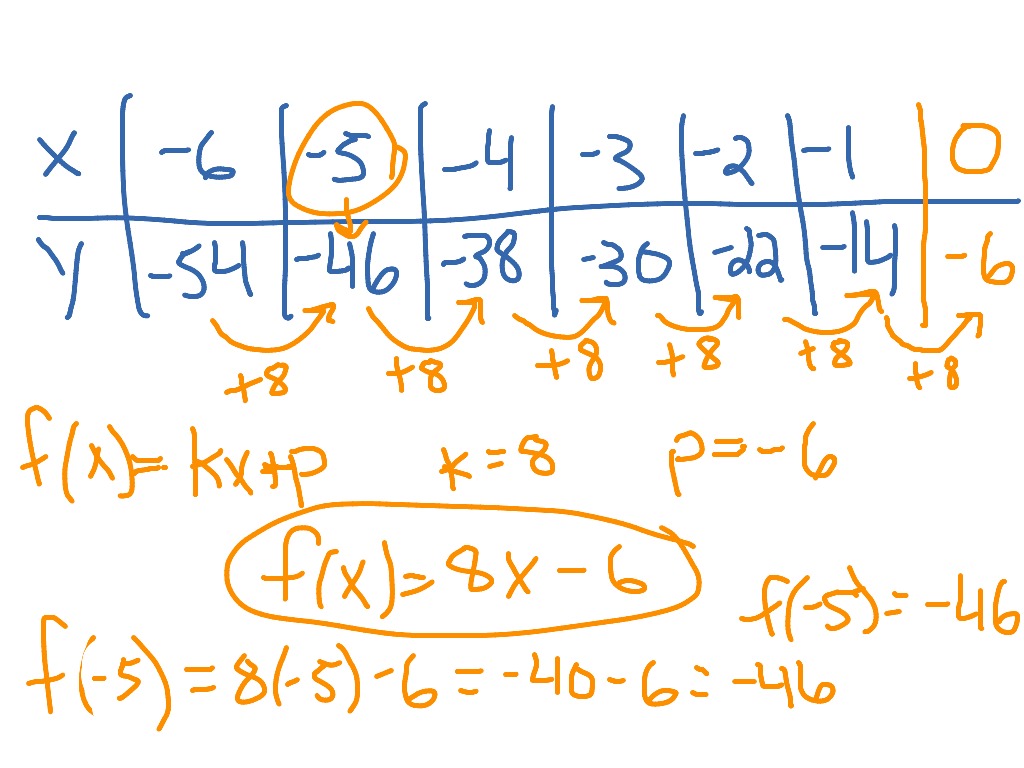 x -6 -5 -4 -3 -2 -1 0
y -54 -46 -38 -30 -22 -14 -6
+8 +8 +8 +8 +8 +8
f(x)= kx+p k=8 p=-6
f(x)=8x-6
f(-5)=-46
f(-5)=8(-5)-6=-40-6=-46